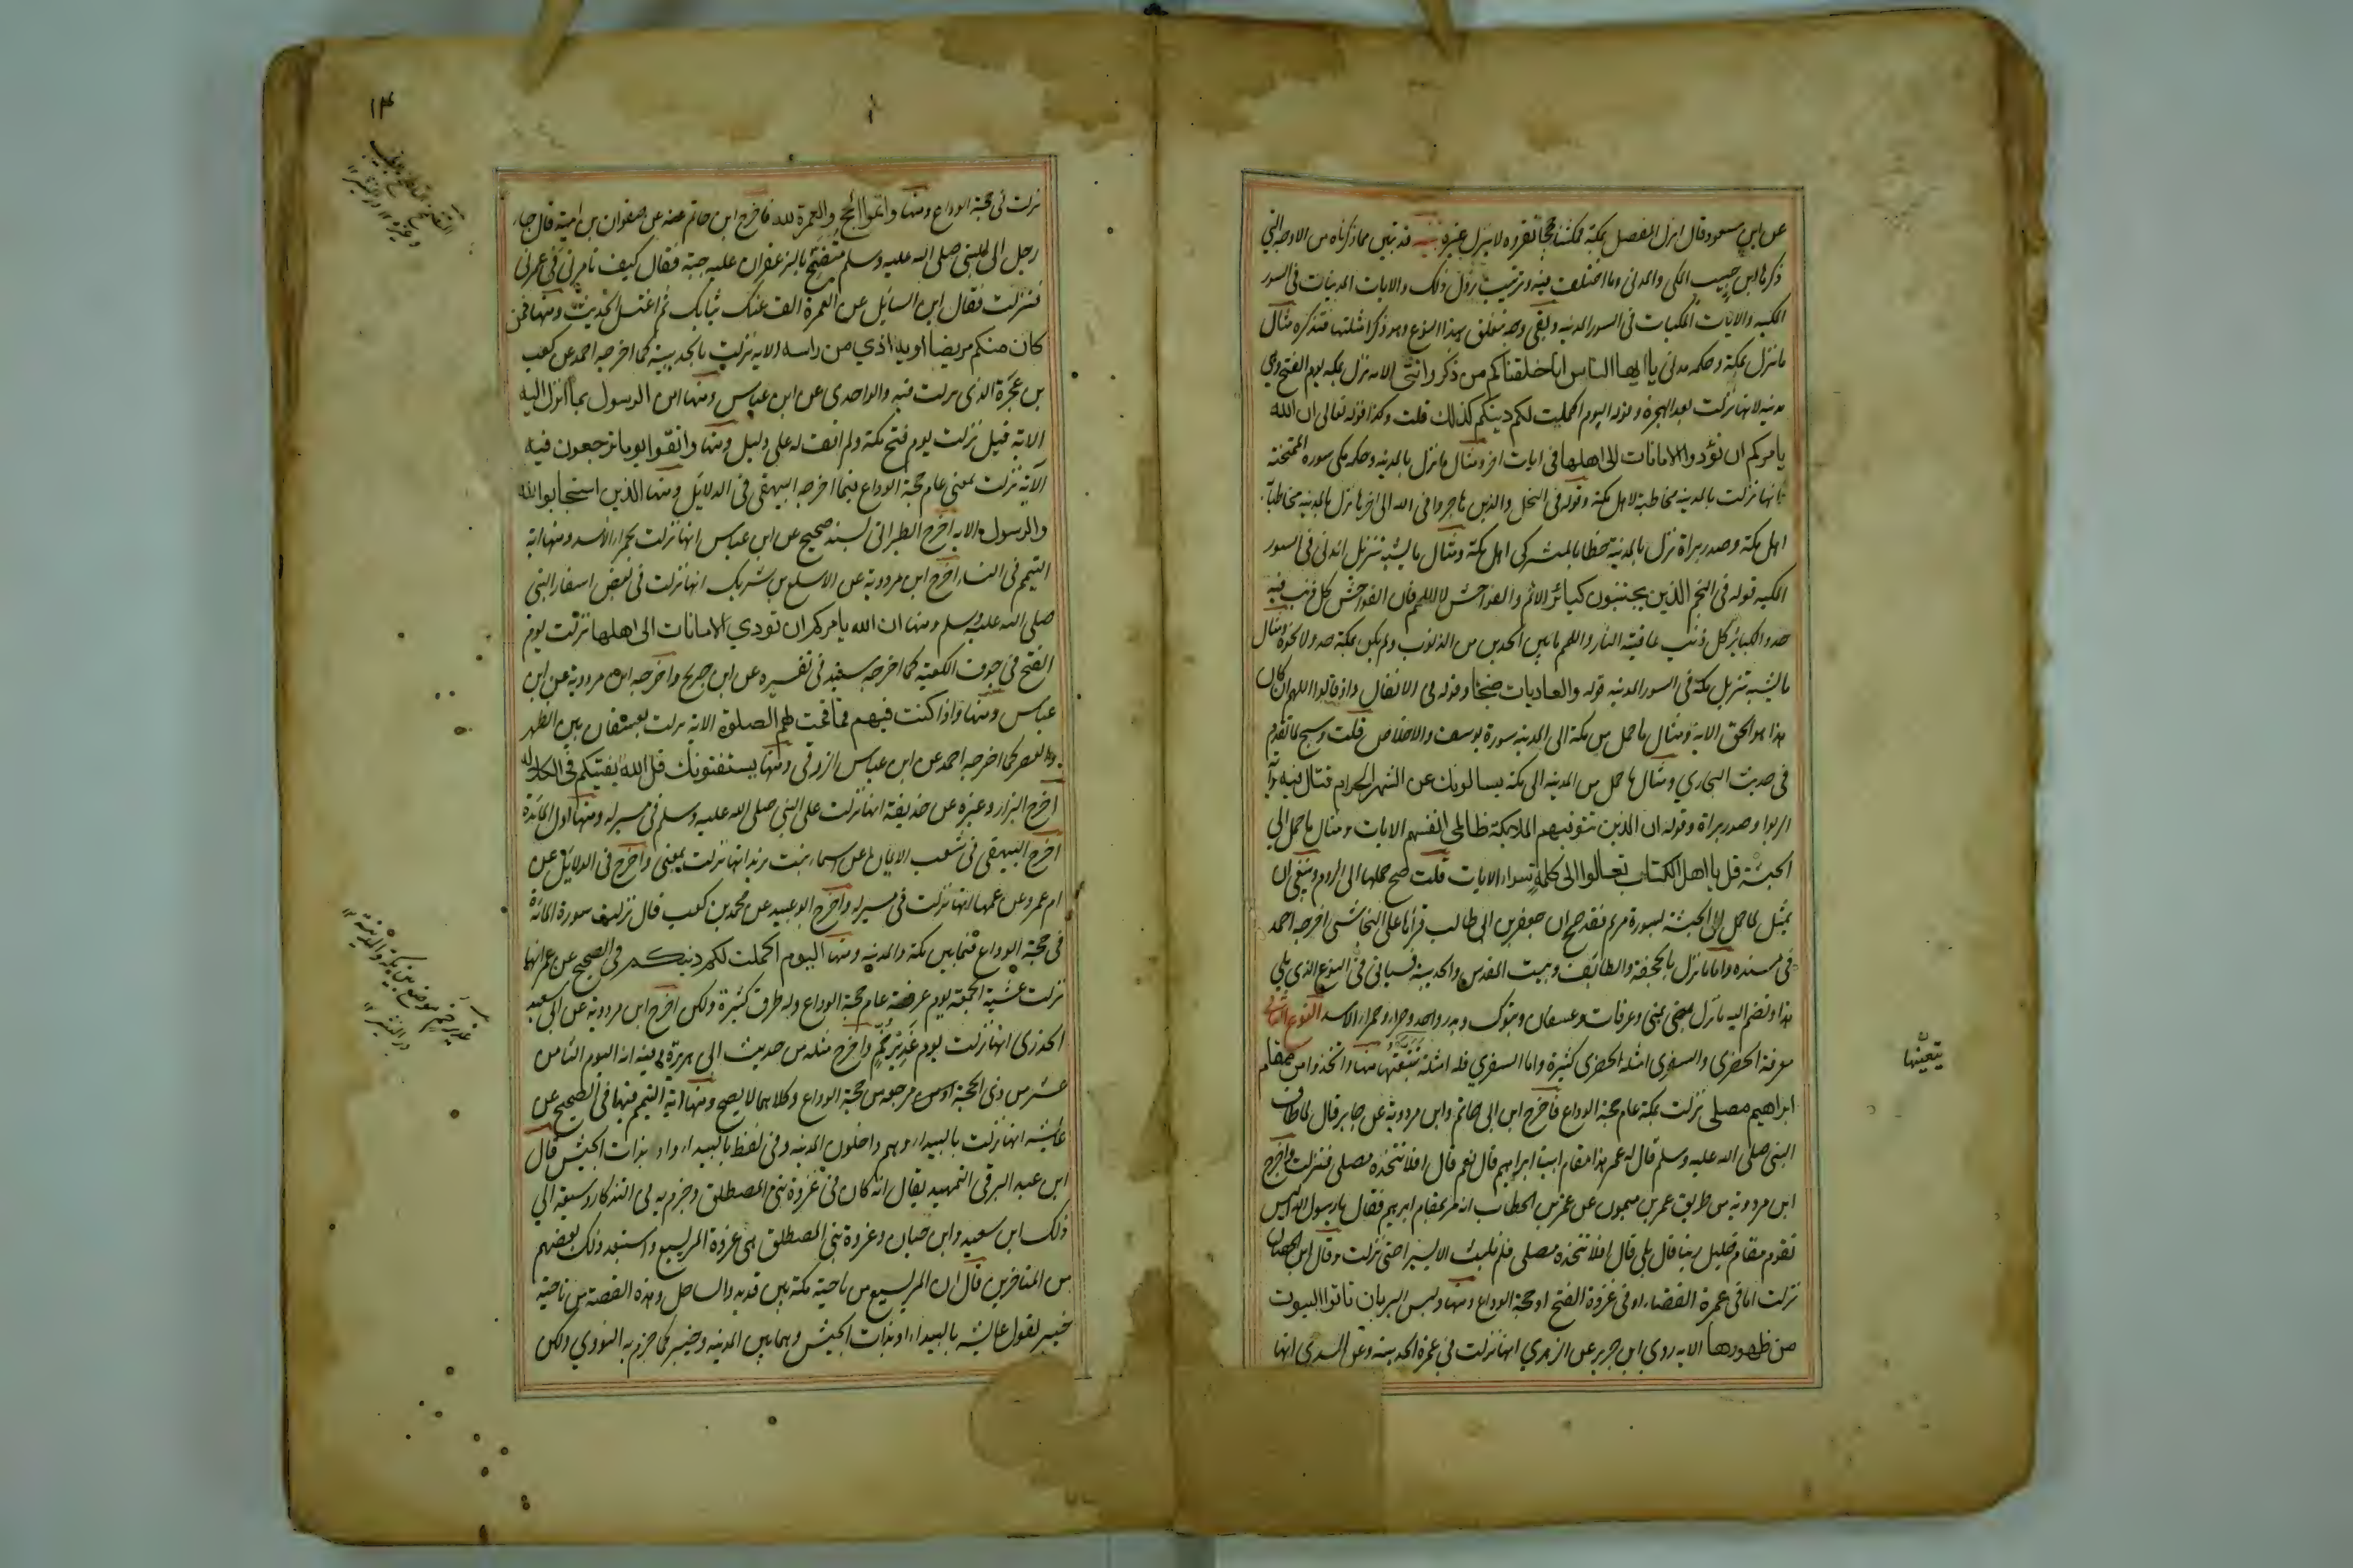 عن ابن مسعود قال انزل المفصل بمكة فمكثنا حججا نقرؤه لا ينزل غيره تنبيه قد تبين مما ذكرناه من الاوجه التي
ذكرها ابن حبيب المكي والمدني وما اختلف فيه وترتيب نزول ذلك والايات المدنيات في السور
المكيه والايات المكيات في السور المدنيه وبقي وجه يتعلق بهذا النوع وهو ذكر امثلتها فنذكره مثال
ما نزل بمكة وحكمه مدني يا ايها الناس انا خلقناكم من ذكر وانثى الايه نزل بمكه يوم الفتح وهي
مدنيه لانها نزلت بعد الهجرة وقوله اليوم اكملت لكم دينكم كذلك قلت وكذا قوله تعالى ان الله
يامركم ان تؤدوا الامانات الى اهلها في ايات اخر ومثال ما نزل بالمدينه وحكمه مكي سورة الممتحنة
فانها نزلت بالمدينه مخاطبة لاهل مكة وقوله في النحل والذين هاجروا في الله الى اخرها نزل بالمدينه مخاطبا
اهل مكة وصدر براة نزل بالمدينة خطابا لمشركى اهل مكة ومثال ما يشبه تنزيل المدني في السور
المكيه قوله في النجم الذين يجتنبون كبائر الاثم والفواحش الا اللمم فان الفواحش كل ذنب فيه
حد والكبائر كل ذنب عاقبته النار واللمم ما بين الحدين من الذنوب ولم يكن بمكة حد ولا نحوه ومثال
ما يشبه تنزيل مكة في السور المدنيه قوله والعاديات ضبحا وقوله في الانفال واذ قالوا اللهم ان كان
هذا هو الحق الاية ومثال ما حمل من مكة الى المدينه سورة يوسف والاخلاص قلت وسبح لما تقدم
في حديث البخاري ومثال ما حمل من المدينه الى مكة يسالونك عن الشهر الحرام قتال فيه وآية
الربوا وصدر براة وقوله ان الذين تتوفيهم الملايكة ظالمي انفسهم الايات ومثال ما حمل الى
الحبشة قل يا اهل الكتاب تعالوا الى كلمة سواء الايات قلت صح حملها الى الروم وينبغي ان
يمثل لما حمل الى الحبشة بسورة مريم فقد صح ان جعفر بن ابي طالب قرأها على النجاشي اخرجه احمد
في مسنده واما ما نزل بالجحفة والطائف وبيت المقدس والحديبية فسياتي في النوع الذي يلي
هذا ونضم اليه ما نزل بمنى وعرفات وعسفان وتبوك وبدر واحد وحراء وحمراء الاسد النوع الثاني
معرفة الحضري والسفري امثلة الحضري كثيرة واما السفري فله امثلة تتبعتها منها واتخذوا من مقام
ابراهيم مصلى نزلت بمكة عام حجة الوداع فاخرج ابن ابي حاتم وابن مردوية عن جابر قال لما طاف
النبي صلى الله عليه وسلم قال له عمر هذا مقام ابينا ابراهيم قال نعم قال افلا نتخذه مصلى فنزلت واخرج
ابن مردوية من طريق عمرو بن ميمون عن عمر بن الخطاب انه مر بمقام ابراهيم فقال يا رسول الله اليس
نقوم مقام خليل ربنا قال بلى قال افلا نتخذه مصلى فلم يلبث الا يسيرا حتى نزلت وقال ابن الحصار
نزلت اما في عمرة القضاء او في غزوة الفتح او حجة الوداع ومنها وليس البر بان تاتوا البيوت
من ظهورها الايه روي ابن جرير عن الزهري انها نزلت في عمرة الحديبية وعن السدي انها
يتبعتها
۱۴
نزلت في حجة الوداع ومنها واتموا الحج والعمرة لله فاخرج ابن حاتم عنه عن صفوان بن امية قال جاء
رجل الى النبي صلى الله عليه وسلم متضمخ بالزعفران عليه جبة فقال كيف تامرني في عمرتي
فنزلت فقال اين السايل عن العمرة الق عنك ثيابك ثم اغتسل الحديث ومنها فمن
كان منكم مريضا او به اذي من راسه الايه نزلت بالحديبية كما اخرجه احمد عن كعب
بن عجرة الذي نزلت فيه والواحدي عن ابن عباس ومنها امن الرسول بما انزل اليه
الاية قيل نزلت يوم فتح مكة ولم اقف له على دليل ومنها واتقوا يوما ترجعون فيه
الاية نزلت بمنى عام حجة الوداع فيما اخرجه البيهقي في الدلايل ومنها الذين استجابوا لله
والرسول الايه اخرج الطبراني بسند صحيح عن ابن عباس انها نزلت بحمراء الاسد ومنها اية
التيمم في النساء اخرج ابن مردوية عن الاسلع بن شريك انها نزلت في بعض اسفار النبي
صلى الله عليه وسلم ومنها ان الله يامركم ان تودي الامانات الى اهلها نزلت يوم
الفتح في جوف الكعبة كما اخرجه سنيد في تفسيره عن ابن جريج واخرجه ابن مردوية عن ابن
عباس ومنها واذا كنت فيهم فاقمت لهم الصلوة الاية نزلت بعسفان بين الظهر
والعصر كما اخرجه احمد عن ابن عباس ازرقي ومنها يستفتونك قل الله يفتيكم في الكلاله
اخرج البزار وغيره عن حذيفة انها نزلت على النبي صلى الله عليه وسلم في مسير له ومنها اول المائدة
اخرج البيهقي في شعب الايمان عن اسماء بنت يزيد انها نزلت بمنى واخرج في الدلايل عن
ام عمرو عن عمها انها نزلت في مسير له واخرج ابو عبيد عن محمد بن كعب قال نزلت سورة المائدة
في حجة الوداع فيما بين مكة والمدينه ومنها اليوم اكملت لكم دينكم وفي الصحيح عن عمر انها
نزلت عشية الجمعة يوم عرفة عام حجة الوداع وله طرق كثيرة ولكن اخرج ابن مردوية عن ابي سعيد
الخدري انها نزلت يوم غدير خم واخرج مثله من حديث ابي هريرة وفيه انه اليوم الثامن
عشر من ذي الحجة مرجعه من حجة الوداع وكلاهما لا يصح ومنها اية التيمم فيها في الصحيح عن
عايشه انها نزلت بالبيداء وهم داخلون المدينه وفي لفظ بالبيداء او بذات الجيش قال
ابن عبد البر في التمهيد يقال انه كان في غزوة بني المصطلق وجزم به في التذكار وسبقه الى
ذلك ابن سعيد وابن حبان وغزوة بني المصطلق هي غزوة المريسيع واستبعد ذلك بعضهم
من المتاخرين قال ان المريسيع من ناحية مكة بين قديد والساحل وهذه القصة من ناحية
خيبر لقول عايشه بالبيداء او بذات الجيش وهما بين المدينه وخيبر كما جزم به النووي ولكن
غدير خم موضع بين مكة والمدينة